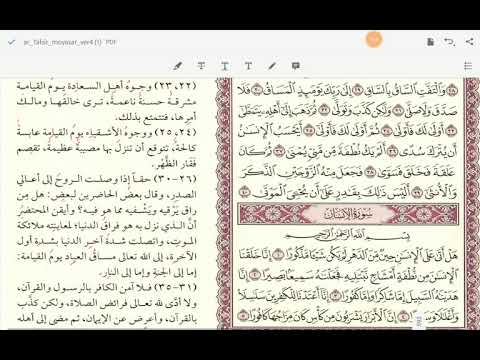 ar_Tafsir_moyassar_ver4 (1) PDF
(٢٢، ٢٣) وجوهُ أهل السعادة يومَ القيامة
مشرقة حسنة ناعمة، ترى خالقها ومالك
أمرها، فتتمتع بذلك.
(٢٤، ٢٥) ووجوه الأشقياء يوم القيامة عابسة
كالحة، تتوقع أن تنزل بها مصيبة عظيمة، تقصِم
فَقَار الظَّهْر.
(٢٦-٣٠) حقاً إذا وصلت الروح إلى أعالي
الصدر، وقال بعض الحاضرين لبعض: هل مِن
راقٍ يَرْقيه ويَشْفيه مما هو فيه؟ وأيقن المحتضرُ
أنَّ الذي نزل به هو فراق الدنيا؛ لمعاينته ملائكة
الموت، واتصلت شدة آخر الدنيا بشدة أول
الآخرة، إلى الله تعالى مساق العباد يوم القيامة:
إما إلى الجنة وإما إلى النار.
(٣١-٣٥) فلا آمن الكافر بالرسول والقرآن،
ولا أدَّى لله تعالى فرائض الصلاة، ولكن كذَّب
بالقرآن، وأعرض عن الإيمان، ثم مضى إلى أهله
وَٱلْتَفَّتِ ٱلسَّاقُ بِٱلسَّاقِ ٢٩ إِلَىٰ رَبِّكَ يَوْمَئِذٍ ٱلْمَسَاقُ ٣٠ فَلَا
صَدَّقَ وَلَا صَلَّىٰ ٣١ وَلَٰكِن كَذَّبَ وَتَوَلَّىٰ ٣٢ ثُمَّ ذَهَبَ إِلَىٰٓ أَهْلِهِۦ يَتَمَطَّىٰٓ
٣٣ أَوْلَىٰ لَكَ فَأَوْلَىٰ ٣٤ ثُمَّ أَوْلَىٰ لَكَ فَأَوْلَىٰٓ ٣٥ أَيَحْسَبُ ٱلْإِنسَٰنُ
أَن يُتْرَكَ سُدًى ٣٦ أَلَمْ يَكُ نُطْفَةً مِّن مَّنِيٍّ يُمْنَىٰ ٣٧ ثُمَّ كَانَ
عَلَقَةً فَخَلَقَ فَسَوَّىٰ ٣٨ فَجَعَلَ مِنْهُ ٱلزَّوْجَيْنِ ٱلذَّكَرَ
وَٱلْأُنثَىٰٓ ٣٩ أَلَيْسَ ذَٰلِكَ بِقَٰدِرٍ عَلَىٰٓ أَن يُحْـِۧيَ ٱلْمَوْتَىٰ ٤٠
سُورَةُ الإِنسَانِ
بِسْمِ ٱللَّهِ ٱلرَّحْمَٰنِ ٱلرَّحِيمِ
هَلْ أَتَىٰ عَلَى ٱلْإِنسَٰنِ حِينٌ مِّنَ ٱلدَّهْرِ لَمْ يَكُن شَيْـًٔا مَّذْكُورًا ١ إِنَّا خَلَقْنَا
ٱلْإِنسَٰنَ مِن نُّطْفَةٍ أَمْشَاجٍ نَّبْتَلِيهِ فَجَعَلْنَٰهُ سَمِيعًۢا بَصِيرًا ٢ إِنَّا
هَدَيْنَٰهُ ٱلسَّبِيلَ إِمَّا شَاكِرًا وَإِمَّا كَفُورًا ٣ إِنَّآ أَعْتَدْنَا لِلْكَٰفِرِينَ سَلَٰسِلَا۟
وَأَغْلَٰلًا وَسَعِيرًا ٤ إِنَّ ٱلْأَبْرَارَ يَشْرَبُونَ مِن كَأْسٍ كَانَ مِزَاجُهَا كَافُورًا ٥